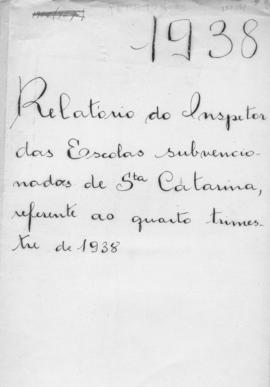 1938
Relatório do Inspetor
das Escolas subvencio-
nadas de Sta Catarina,
referente ao quarto trimes-
tre de 1938